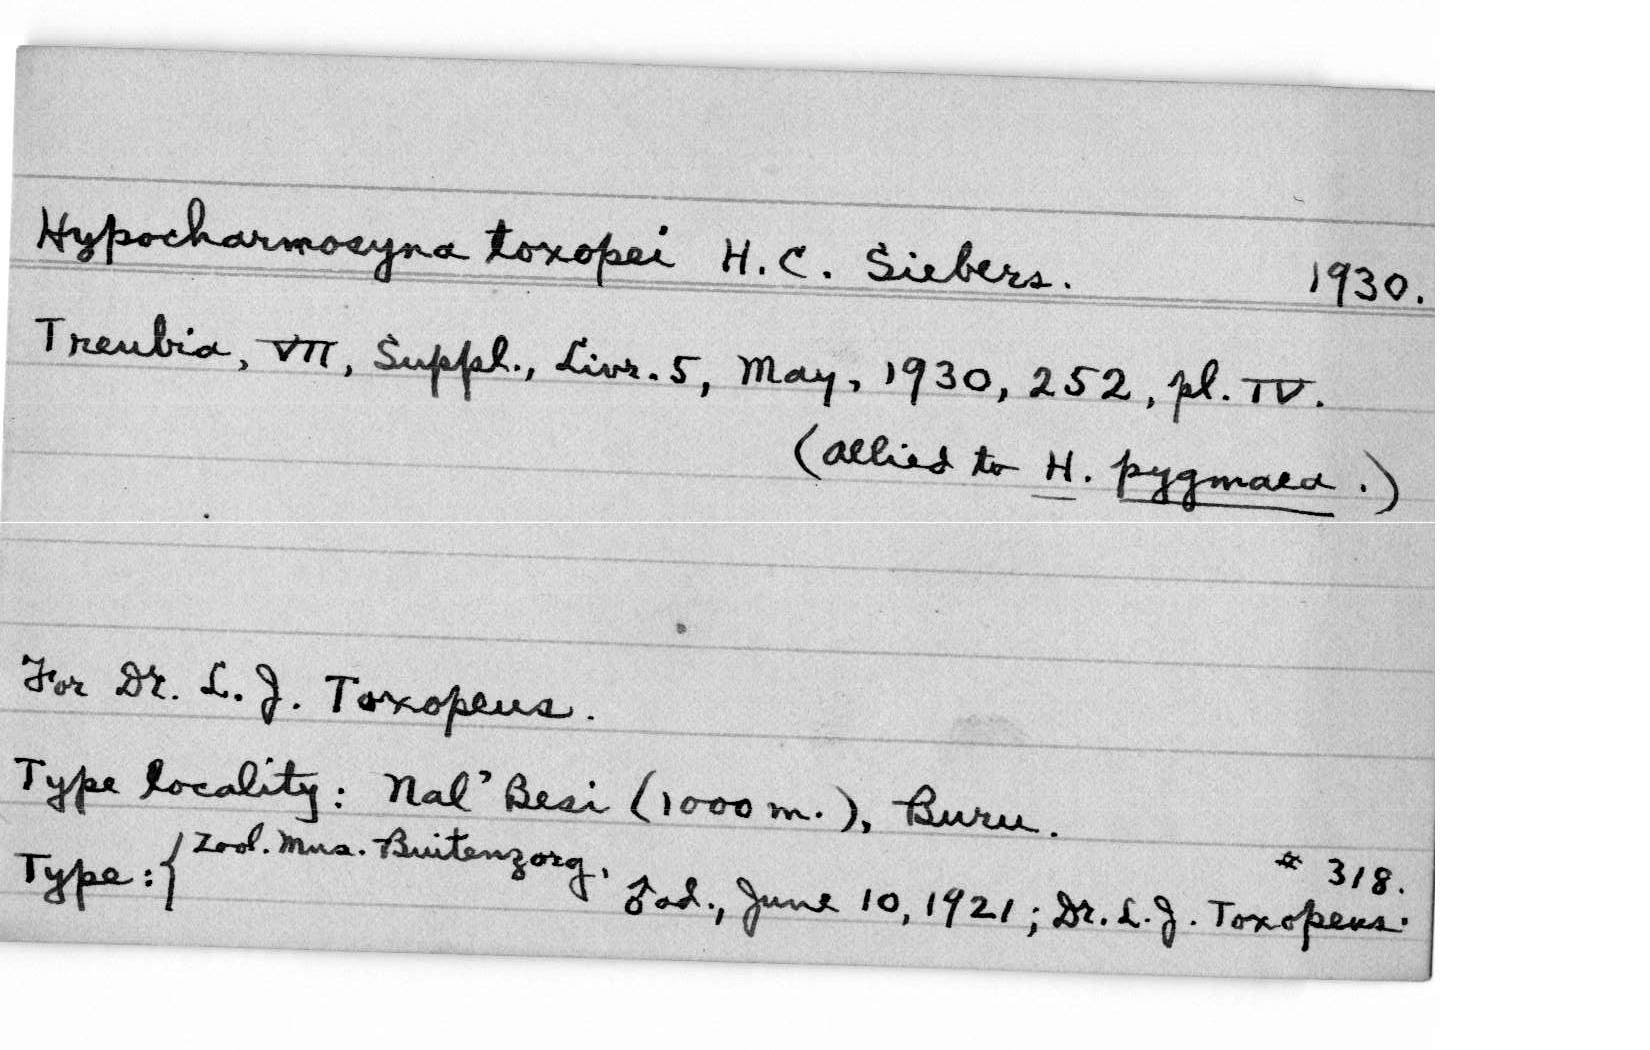 Hypocharmosyna toxopei H. C. Siebers. 1930.
Treubia, VII, Suppl., Livr. 5, May, 1930, 252, pl. IV.
(allied to H. pygmaea.)
For Dr. L. J. Toxopeus.
Type locality: Nal' Besi (1000 m.), Buru.
Type: { Zool. Mus. Buitenzorg. # 318.
♂ ad., June 10, 1921; Dr. L. J. Toxopeus.